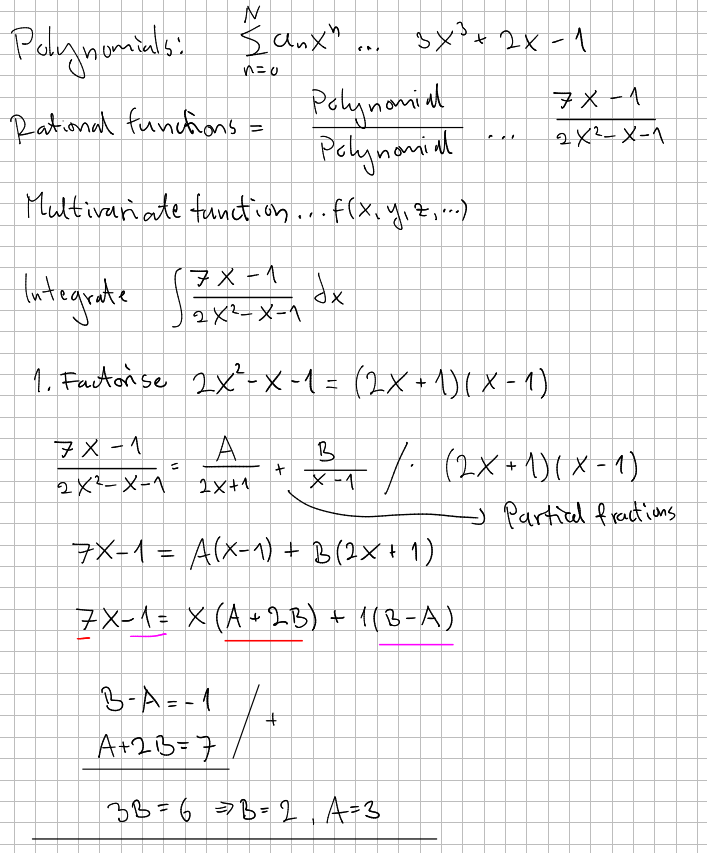 Polynomials: \sum_{n=0}^{N} a_n x^n ... 3x^3 + 2x - 1
Rational functions = \frac{Polynomial}{Polynomial} ... \frac{7x - 1}{2x^2 - x - 1}
Multivariate function ... f(x, y, z, ...)
Integrate \int \frac{7x - 1}{2x^2 - x - 1} dx
1. Factorise 2x^2 - x - 1 = (2x + 1)(x - 1)
\frac{7x - 1}{2x^2 - x - 1} = \frac{A}{2x + 1} + \frac{B}{x - 1} / · (2x + 1)(x - 1)
Partial fractions
7x - 1 = A(x - 1) + B(2x + 1)
7x - 1 = x(A + 2B) + 1(B - A)
B - A = -1
A + 2B = 7 / +
3B = 6 ⇒ B = 2, A = 3